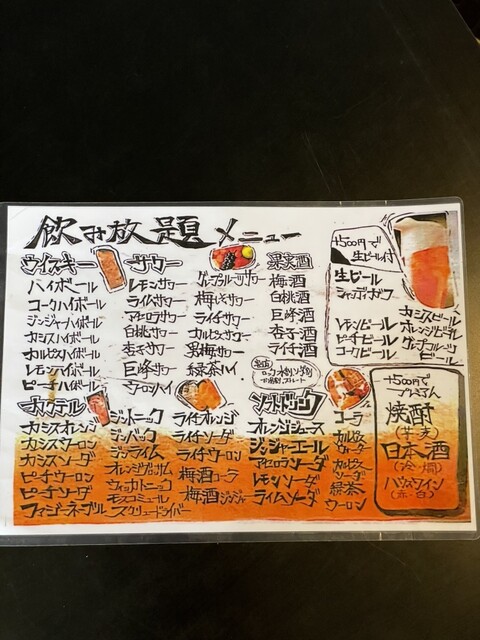 飲み放題メニュー
ウイスキー
ハイボール
コークハイボール
ジンジャーハイボール
カシスハイボール
カルピスハイボール
レモンハイボール
ピーチハイボール
サワー
レモンサワー
ライムサワー
アセロラサワー
白桃サワー
杏子サワー
巨峰サワー
ウーロンハイ
グレープフルーツサワー
梅しそサワー
ライチサワー
カルピスサワー
男梅サワー
緑茶ハイ
果実酒
梅酒
白桃酒
巨峰酒
杏子酒
ライチ酒
ロック・水わり・ソーダわり
お湯わり・ストレート
+500円で
生ビール付
生ビール
シャンディガフ
レモンビール
ピーチビール
コークビール
カシスビール
オレンジビール
グレープフルーツ
ビール
カクテル
カシスオレンジ
カシスウーロン
カシスソーダ
ピーチウーロン
ピーチソーダ
ファジーネーブル
ジントニック
ジンバック
ジンライム
オレンジブロッサム
ウォッカトニック
モスコミュール
スクリュードライバー
ライチオレンジ
ライチソーダ
ライチウーロン
梅酒コーラ
梅酒ジンジャー
ソフトドリンク
オレンジジュース
ジンジャーエール
アセロラソーダ
レモンソーダ
ライムソーダ
コーラ
カルピス
ウォーター
カルピス
ソーダ
緑茶
ウーロン
+500円で
プレミアム
焼酎
(芋・麦)
日本酒
(冷・燗)
ハウスワイン
(赤・白)